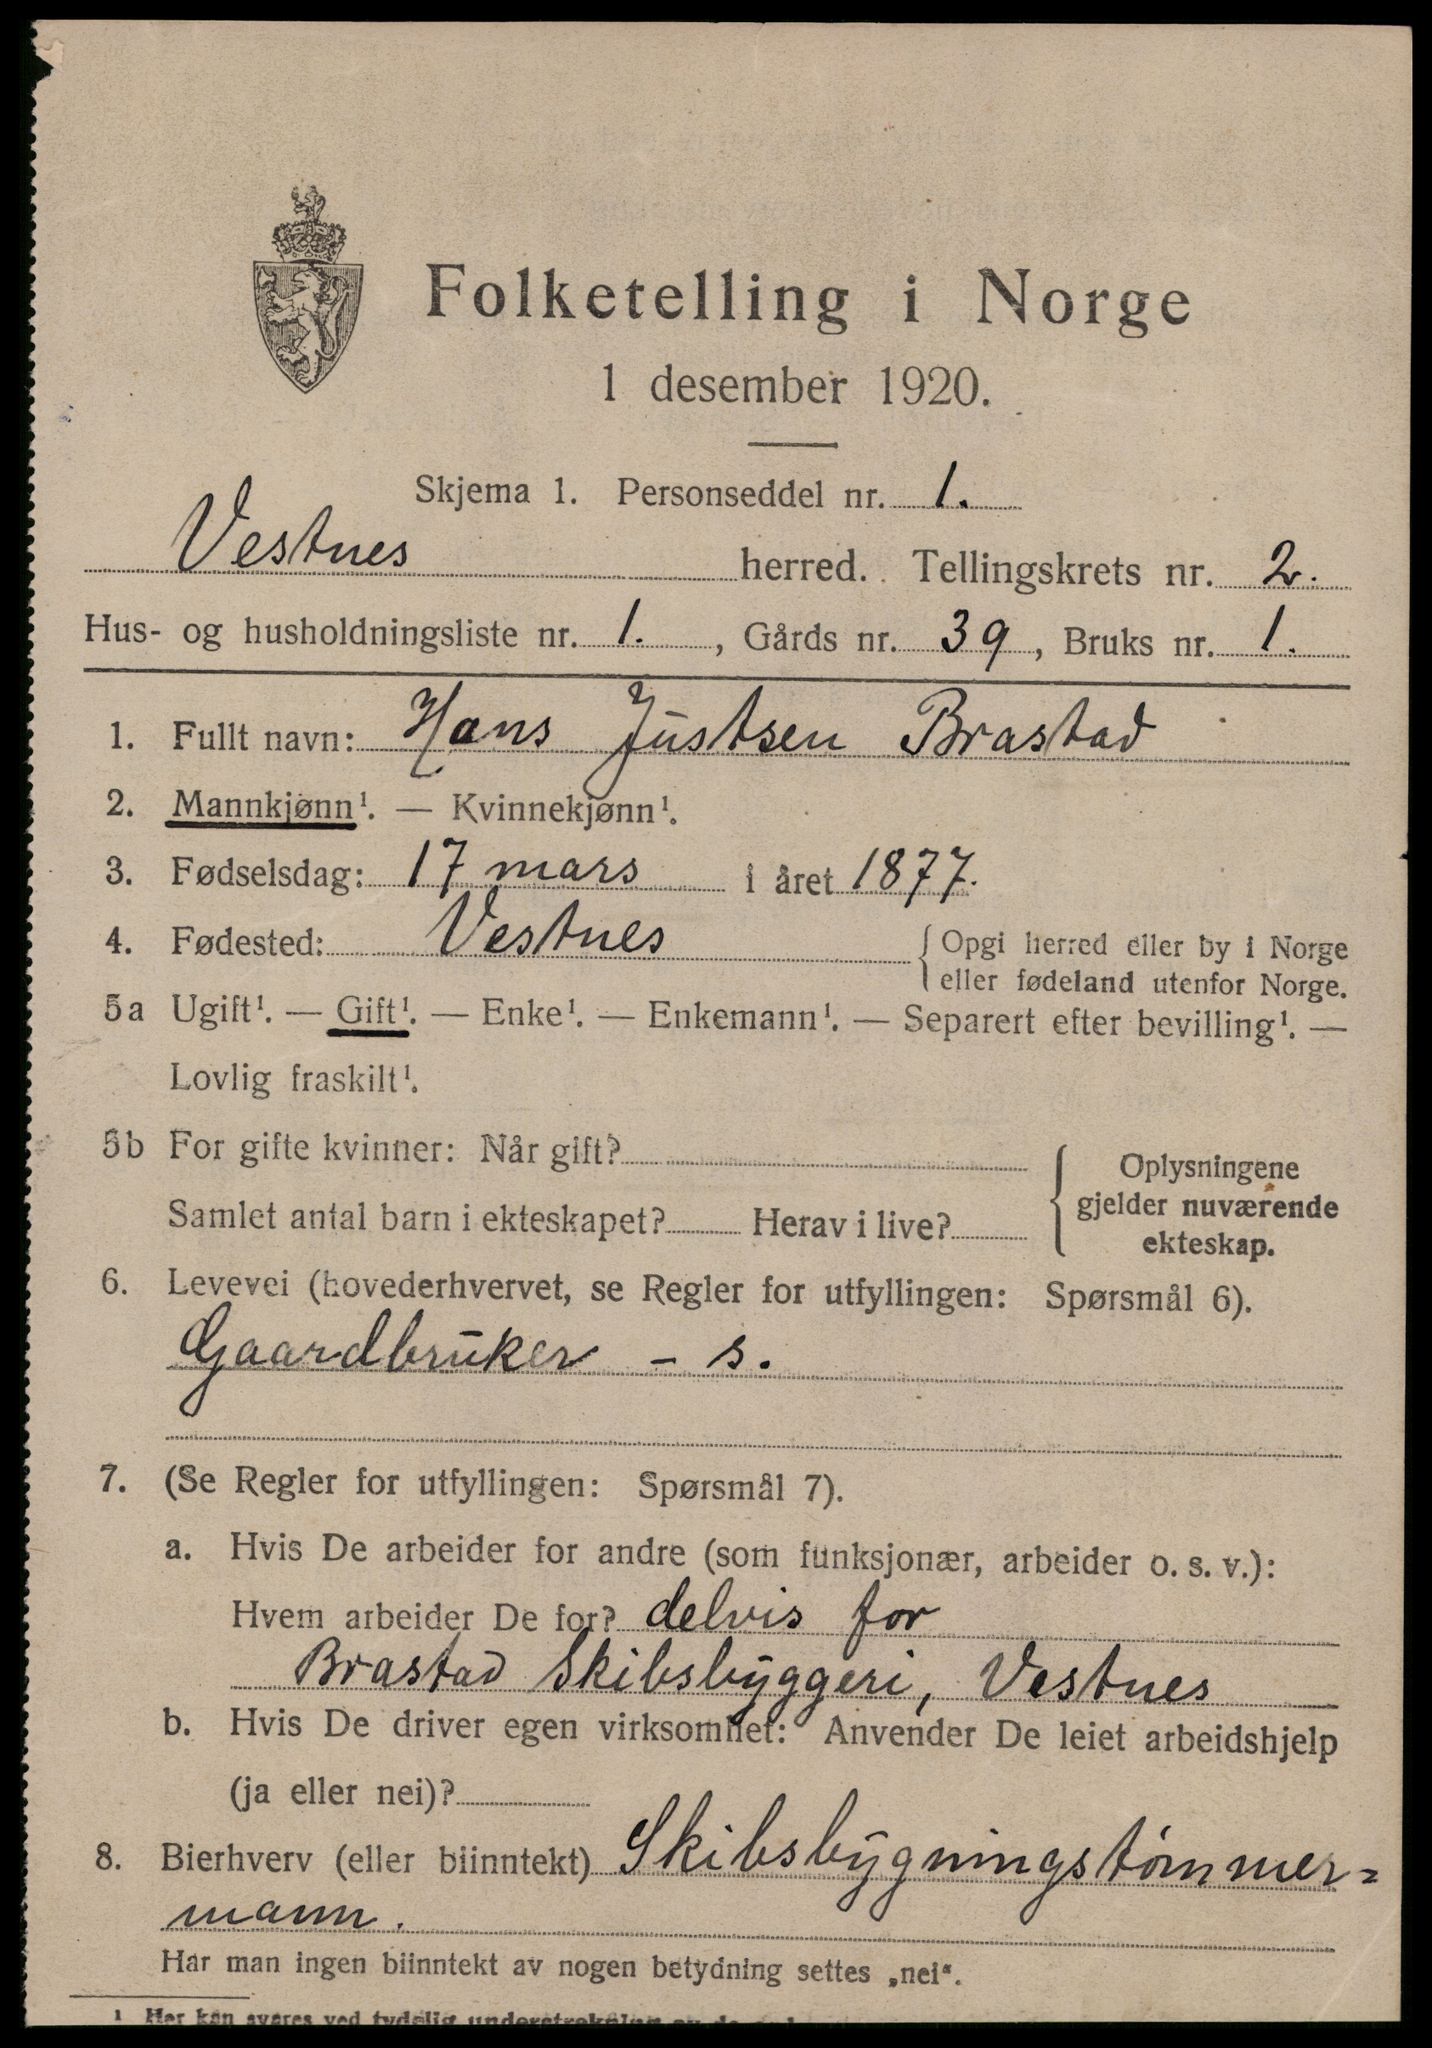 Folketelling i Norge
1 desember 1920.
Skjema 1. Personseddel nr. 1.
Vestnes herred. Tellingskrets nr. 2.
Hus- og husholdningsliste nr. 1., Gårds nr. 39, Bruks nr. 1.
1. Fullt navn: Hans Justsen Brastad
2. Mannkjønn¹. — Kvinnekjønn¹.
3. Fødselsdag: 17 mars i året 1877.
4. Fødested: Vestnes { Opgi herred eller by i Norge
eller fødeland utenfor Norge.
5a Ugift¹. — Gift¹. — Enke¹. — Enkemann¹. — Separert efter bevilling¹. —
Lovlig fraskilt¹.
5b For gifte kvinner: Når gift?
Samlet antal barn i ekteskapet? Herav i live?
{ Oplysningene
gjelder nuværende
ekteskap.
6. Levevei (hovederhvervet, se Regler for utfyllingen: Spørsmål 6).
Gaardbruker - s.
7. (Se Regler for utfyllingen: Spørsmål 7).
a. Hvis De arbeider for andre (som funksjonær, arbeider o. s. v.):
Hvem arbeider De for? delvis for
Brastad Skibsbyggeri, Vestnes
b. Hvis De driver egen virksomhet: Anvender De leiet arbeidshjelp
(ja eller nei)?
8. Bierhverv (eller biinntekt) Skibsbygningstømmer=
mann.
Har man ingen biinntekt av nogen betydning settes „nei“.
¹ Her kan svares ved tydelig understrekning av de